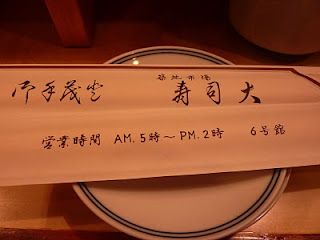 御手茂登
築地市場
寿司大
営業時間 AM.5時〜PM.2時 6号館